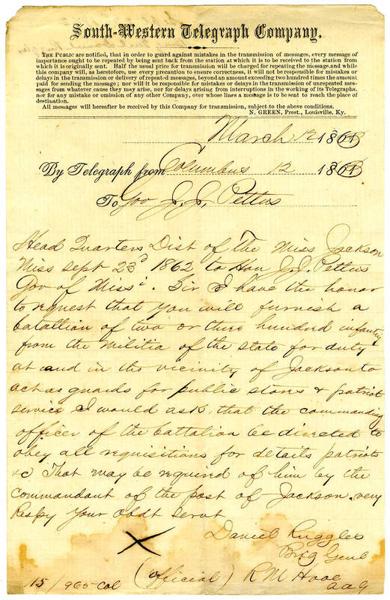 South-Western Telegraph Company.
THE PUBLIC are notified, that in order to guard against mistakes in the transmission of messages, every message of
importance ought to be repeated by being sent back from the station at which it is to be received to the station
from which it is originally sent. Half the usual price for transmission will be charged for repeating the message, and while
this company will, as heretofore, use every precaution to ensure correctness, it will not be responsible for mistakes or
delays in the transmission or delivery of repeated messages, beyond an amount exceeding one hundred times the amount
paid for sending the message; nor will it be responsible for mistakes or delays in the transmission of unrepeated messages
from whatever cause they may arise, nor for delays arising from interruptions in the working of its Telegraphs,
nor for any mistake or omission of any other Company, over whose lines a message is to be sent to reach the place of
destination.
All messages will hereafter be received by this Company for transmission, subject to the above conditions.
N. GREEN, Prest., Louisville, Ky.
March 12 1863
By Telegraph from Columbus 12 1863
To Gov J. J. Pettus
Head Quarters Dist of The Miss Jackson
Miss sept 23d 1862 to Hon J. J. Pettus
Gov of Missi. Sir I have the honor
to request that you will furnish a
batallion of two or three hundred infantry
from the Militia of the state for duty
at and in the vicinity of Jackson to
act as guards for public stores & patriot
service I would ask that the commanding
officer of the battalion be directed to
obey all requisitions for details patriots
&c That may be required of him by the
commandant of the post of Jackson very
Respy your obdt servt
Daniel Ruggles
Brig Genl
(official) R M Hooe
a a g
15/ 960 Col